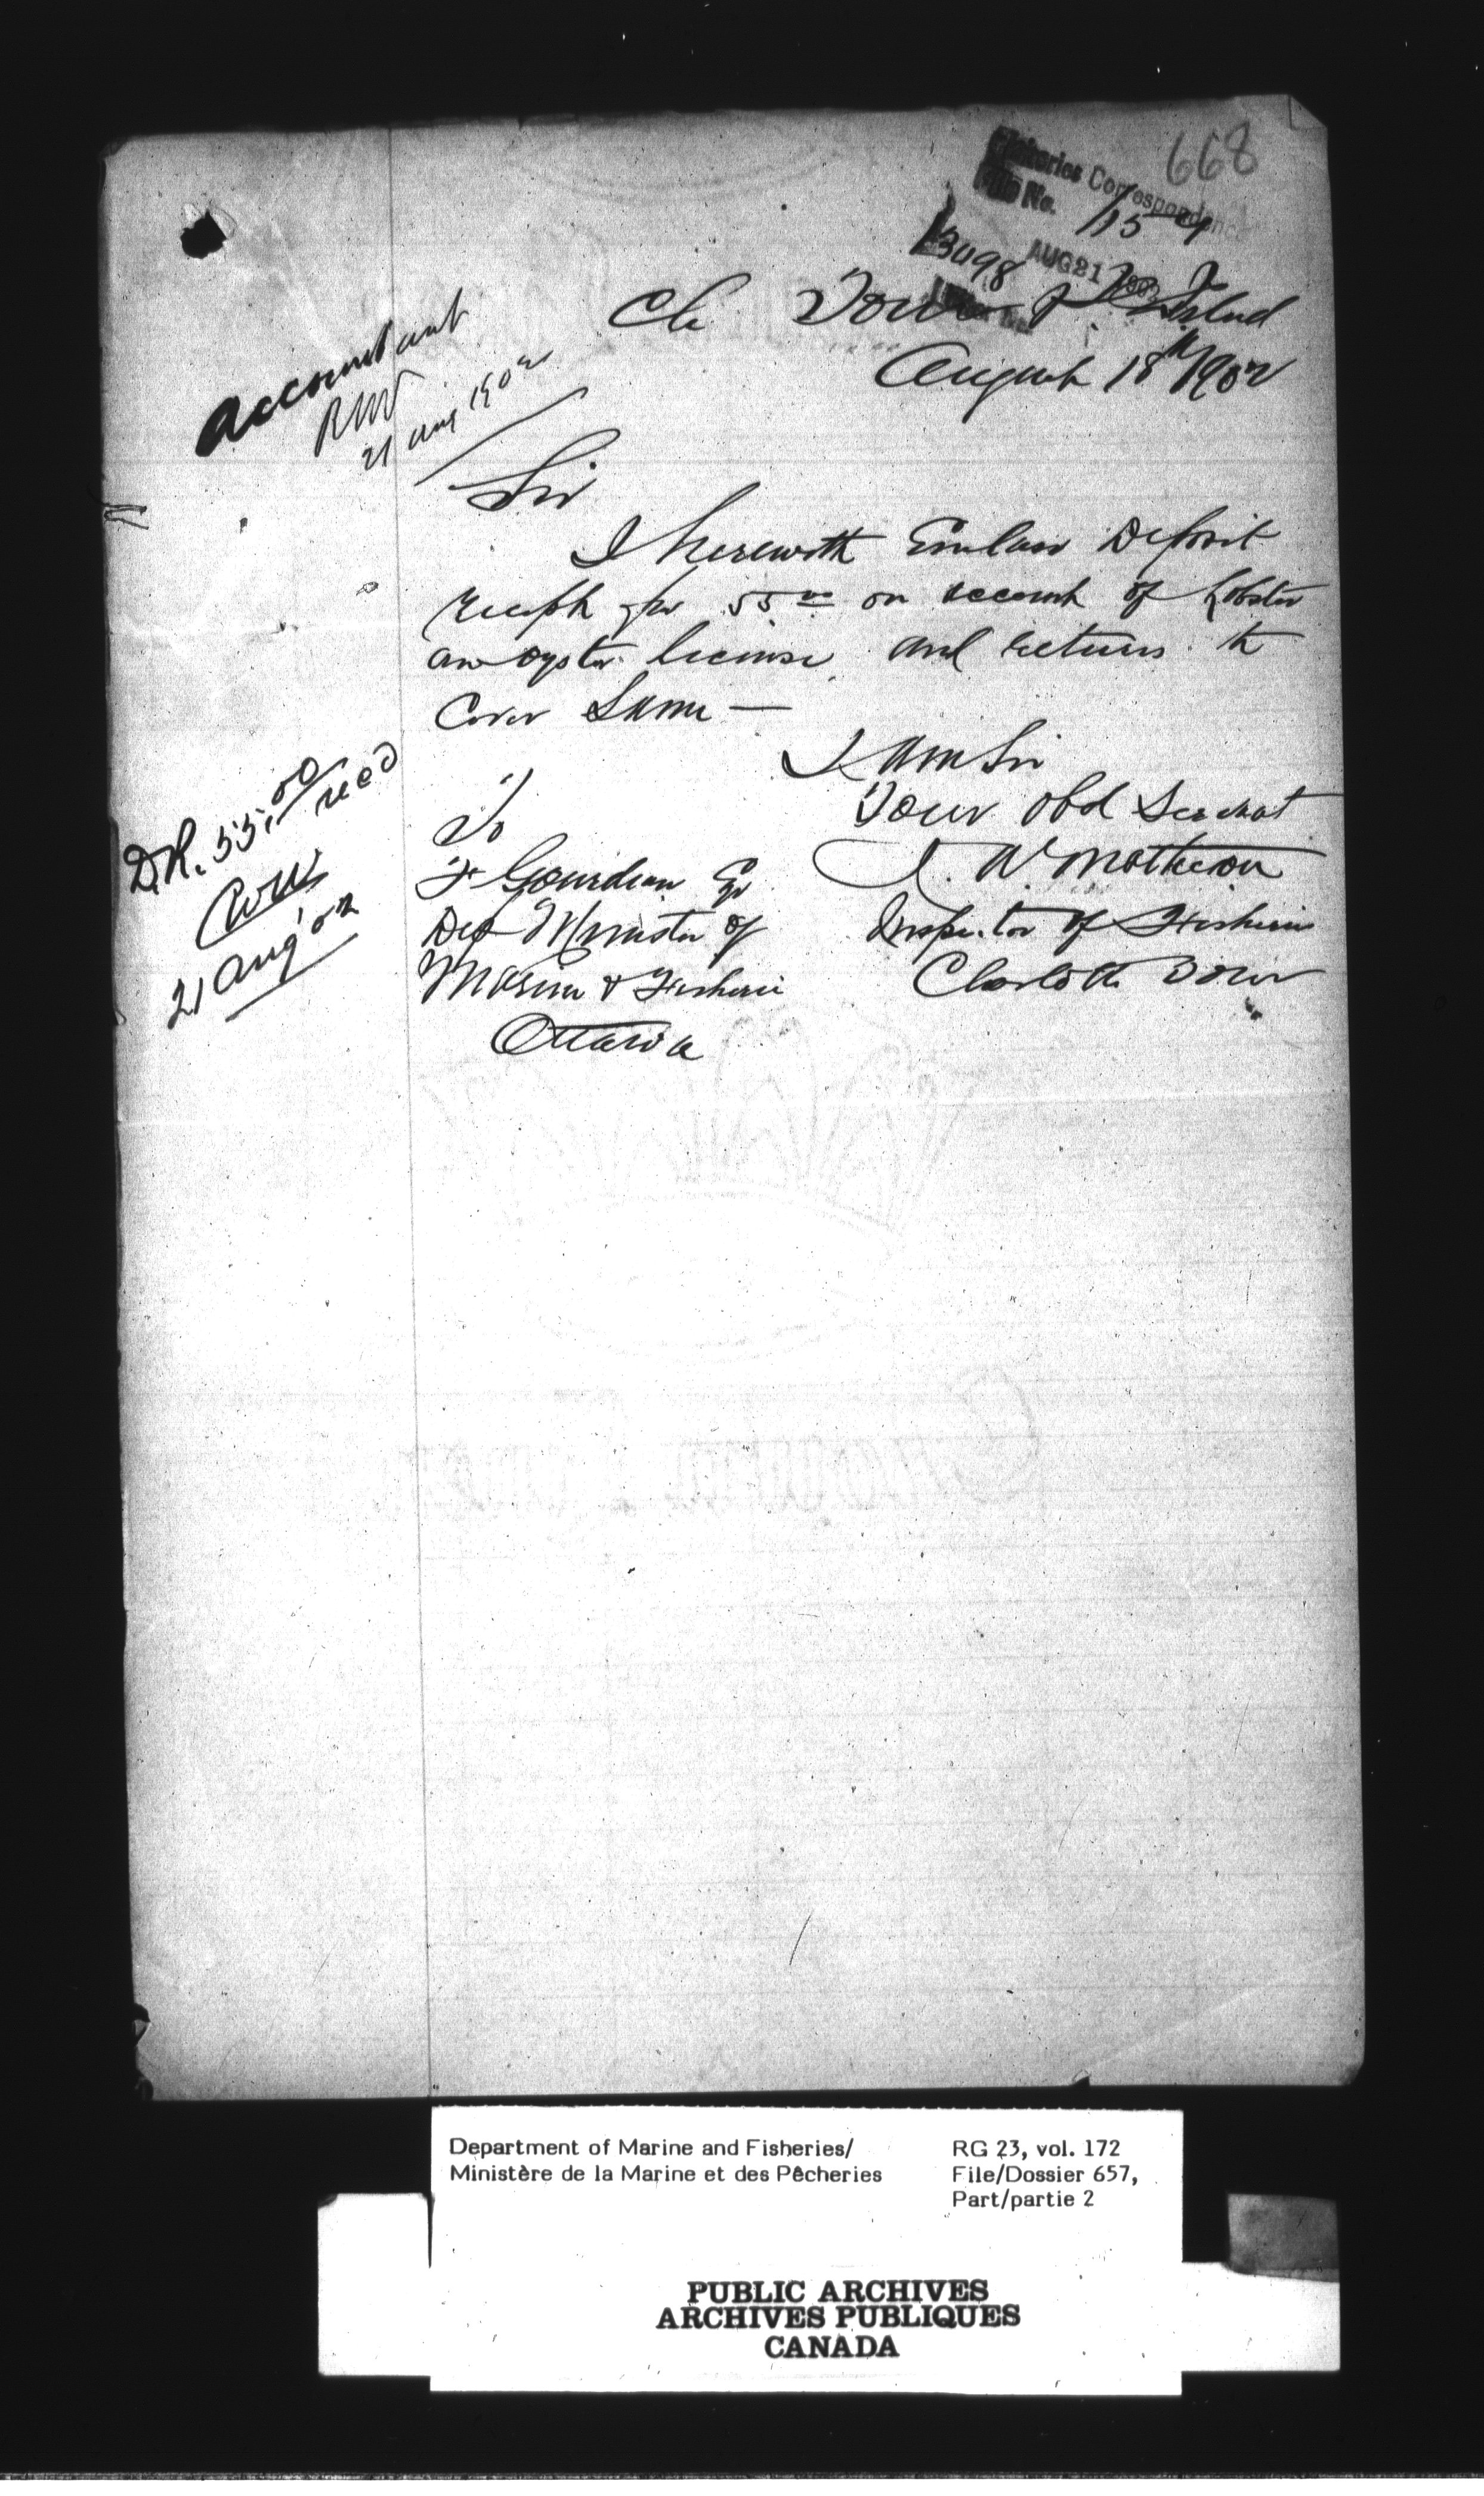 668
Fisheries Correspondence
File No.
13098 AUG 21 1902
Ch Town P E Island
August 18th 1902
Accountant
RW
21 Aug 1902
Sir
I herewith Enclose Deposit
receipt for 55 00 on account of Lobster
an oyster license and returns to
Cover Same —
I Am Sir
Your Obd Servant
J. A. Matheson
Inspector of Fisheries
Charlotte Town
To
F Gourdeau Esq
Dep Minister of
Marine & Fisheries
Ottawa
D.R. 55.00 recd
21 Aug '02
Department of Marine and Fisheries/
Ministère de la Marine et des Pêcheries
RG 23, vol. 172
File/Dossier 657,
Part/partie 2
PUBLIC ARCHIVES
ARCHIVES PUBLIQUES
CANADA